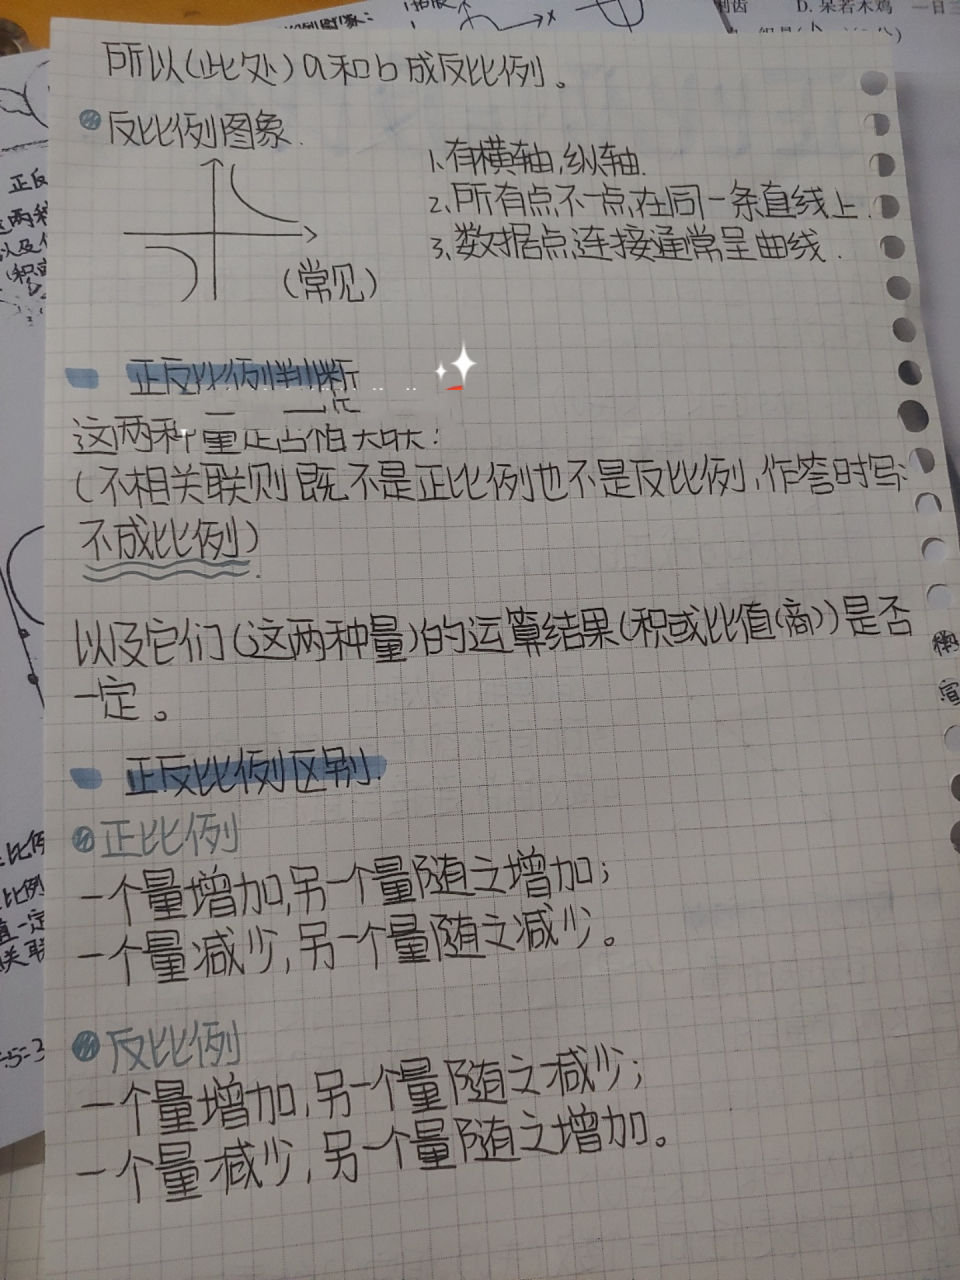 制齿 D. 呆若木鸡 一目三
所以(此处)a和b成反比例。
反比例图象.
1、有横轴,纵轴.
2、所有点不一点在同一条直线上.
3、数据点连接通常呈曲线.
(常见)
正反比例判断
这两种量是否相关联:
(不相关联则既不是正比例也不是反比例,作答时写:
不成比例)
以及它们(这两种量)的运算结果(积或比值(商))是否
一定。
正反比例区别
正比例
一个量增加,另一个量随之增加;
一个量减少,另一个量随之减少。
反比例
一个量增加,另一个量随之减少;
一个量减少,另一个量随之增加。